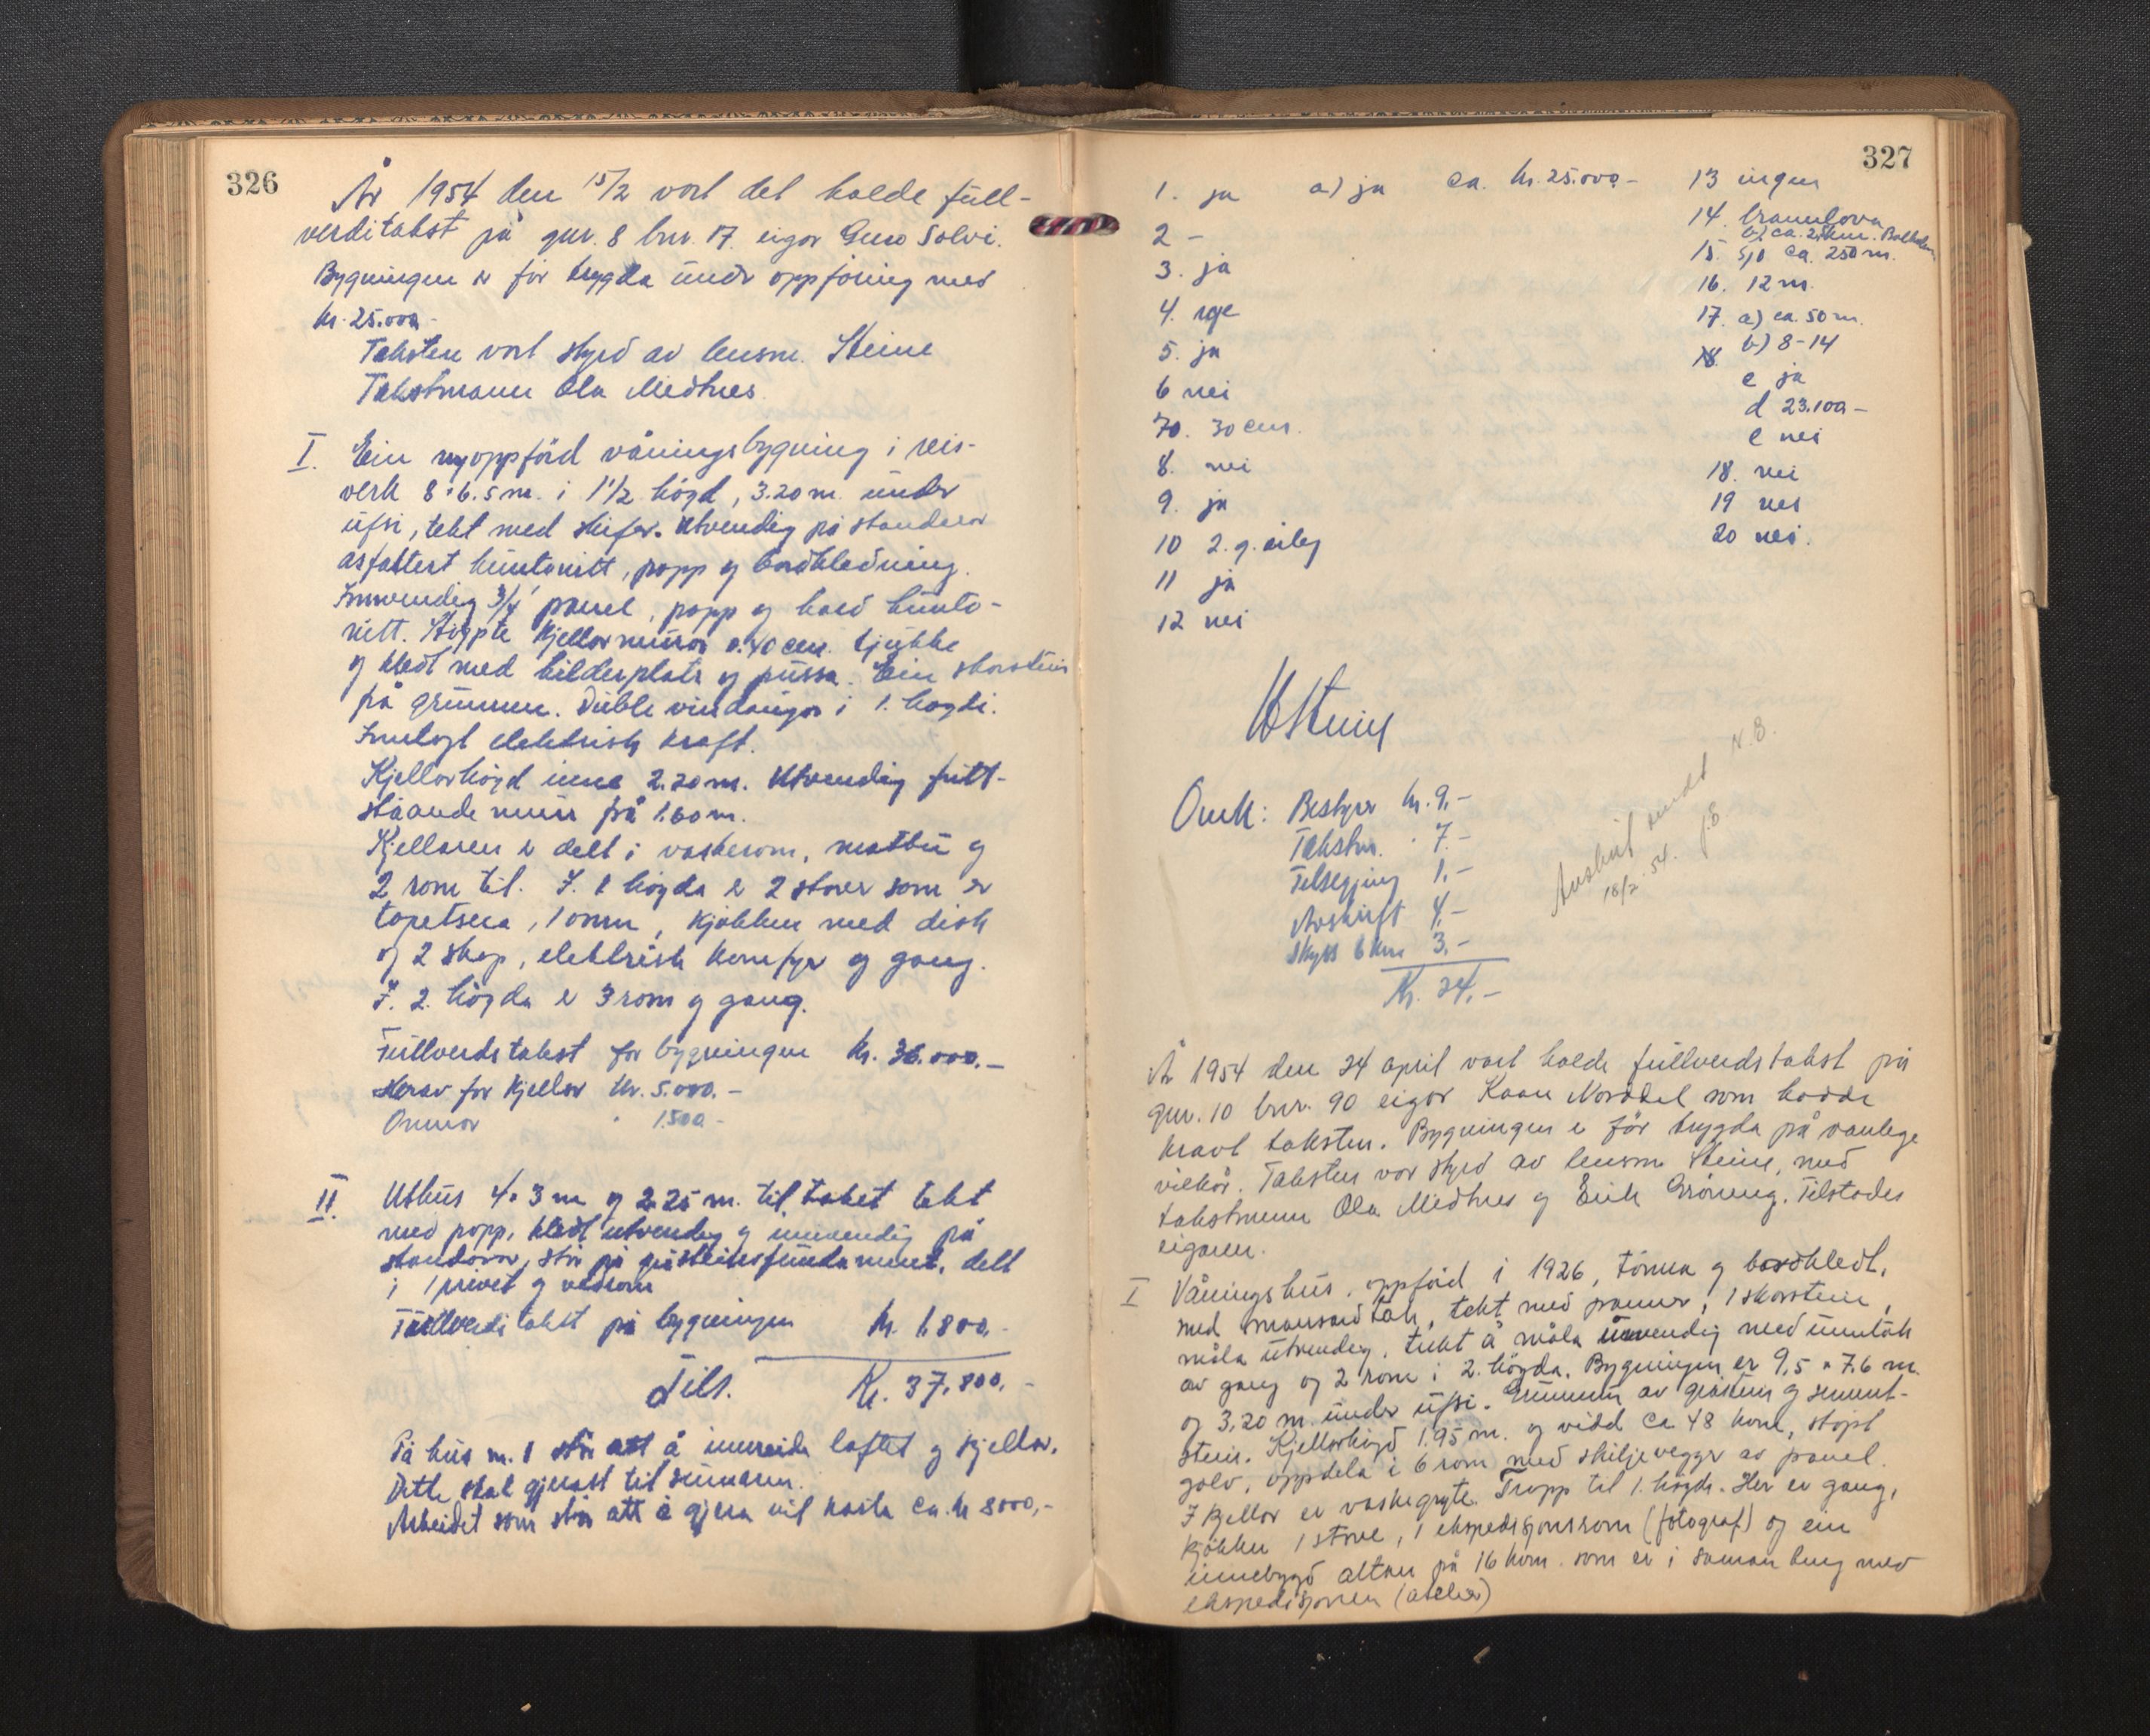 326
År 1954 den 15/2 vart det halde full-
verditakst på gnr. 8 bnr. 17. eigar Guro Solvi.
Bygningen er før trygda under oppføring med
kr. 25.000.-
Taksten vart styrd av lensm. Steine
Takstmann Ola Medhus.
I. Ein nyoppförd våningsbygning i reis-
verk 8 · 6.5 m. i 1 1/2 högd, 3.20 m. under
ufsi, tekt med skifer. Utvendig på standarar
asfaltert huntonitt, papp og bordkledning.
Innvendig 3/4" panel, papp og hard hunto-
nitt. Støypte kjellarmurar o. 40 cm. tjukke
og kledt med bilderplatr og pussa. Ein skorstein
på grunnen. Duble vindaugor i 1. høgdi.
Innlagt elektrisk kraft.
Kjellarhögd inne 2.20 m. Utvendig fritt-
ståande mur på 1.60 m.
Kjellaren er delt i vaskerom, matbu og
2 rom til. I. 1 högda er 2 stover som er
tapetsera, 1 omn, kjøkken med disk
og 2 skap, elektrisk komfyr og gang.
I. 2. högda er 3 rom og gang.
Fullverdstakst for bygningen kr. 36.000.-
Herav for kjellar kr. 5.000.-
Omnar " 1.500.-
II. Uthus 4 · 3 m og 2.25 m. til taket tekt
med papp, kledt utvendig og innvendig på
standarar, står på gråsteinsfundament, delt
i 1 privet og vedrom
Fullverditakst på bygningen kr. 1.800.-
Tils. Kr. 37.800.-
På hus nr. 1 står att å innreide loftet og kjellar.
Dette skal gjerast til sumaren.
Arbeidet som står att å gjera vil kosta ca. kr 8000,-
327
1. ja a) ja ca. kr. 25.000.-
2 -
3. ja
4. nye
5. ja
6 nei
7a. 30 cm.
8. nei
9. ja
10 2. g. årleg
11 ja
12 nei
13 ingen
14.
b) ca. 25 km.
15. ca. 250 m.
16. 12 m.
17. a) ca. 50 m.
b) 8-14
c ja
d 23.100-
e nei
18. nei
19 nei
20 nei.
Steine
Omk: Bestyrer kr. 9.-
Takstm. " 7.-
Tilsegjing 1.-
Avskrift 4.-
Skyss 6 km 3.-
Kr. 24.-
Avskrift sendt N.B.
18/2. 54.
År 1954 den 24 april vart halde fullverdstakst på
gnr. 10 bnr. 90 eigar Kaare Norddal som hadde
kravt taksten. Bygningen er för trygda på vanlege
vilkår. Taksten var styrd av lensm Steine, med
takstmenn Ola Medhus og Eirik Gröneng. Tilstades
eigaren.
I Våningshus, oppförd i 1926, tömra og bordkledt,
med mansardtak, tekt med panner, 1 skorstein,
måla utvendig, tekt å måla innvendig med unntak
av gang og 2 rom i 2. högda. Bygningen er 9,5 · 7,6 m.
og 3.20 m under ufsi. Grunnen av gråstein og sement-
stein. Kjellarhögd 1.95 m. og vidd ca 48 kvm, stöpt
golv, oppdela i 6 rom med skiljevegger av panel.
I kjellar er vaskegryte. Tropp til 1. högde. Her er gang,
kjökken 1 stove, 1 ekspedisjonsrom (fotograf) og ein
innebygd altan på 16 kvm. som er i samanheng med
ekspedisjonen (atelier)